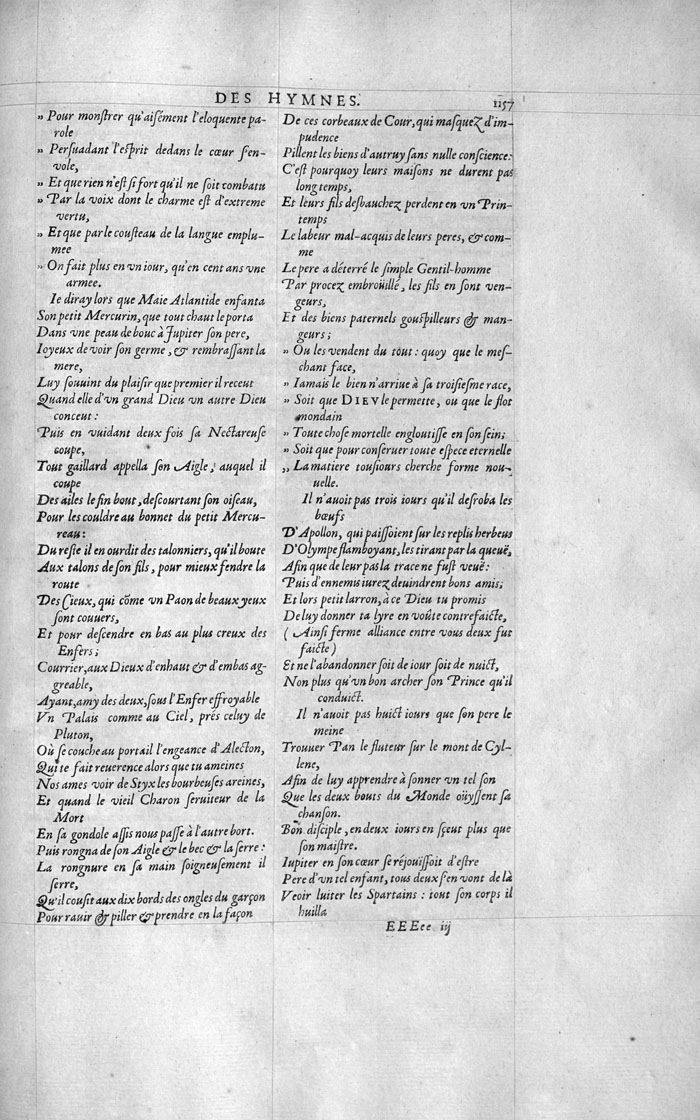 DES HYMNES.
1157
» Pour monſtrer qu'aiſément l'eloquente pa-
role
» Perſuadant l'eſprit dedans le cœur ſ'en-
vole,
» Et que rien n'eſt ſi fort qu'il ne ſoit combatu
» Par la voix dont le charme eſt d'extreme
vertu,
» Et que par le couſteau de la langue emplu-
mee
» On fait plus en vn iour, qu'en cent ans vne
armee.
Ie diray lors que Maie Atlantide enfanta
Son petit Mercurin, que tout chaut le porta
Dans vne peau de bouc à Jupiter ſon pere,
Ioyeux de voir ſon germe, & rembraſſant la
mere,
Luy ſouuint du plaiſir que premier il receut
Quand elle d'vn grand Dieu vn autre Dieu
conceut :
Puis en vuidant deux fois ſa Nectareuſe
coupe,
Tout gaillard appella ſon Aigle, auquel il
coupe
Des ailes le fin bout, deſcourtant ſon oiſeau,
Pour les couldre au bonnet du petit Mercu-
reau :
Du reſte il en ourdit des talonniers, qu'il boute
Aux talons de ſon fils, pour mieux fendre la
route
Des Cieux, qui cõme vn Paon de beaux yeux
ſont couuers,
Et pour deſcendre en bas au plus creux des
Enfers ;
Courrier, aux Dieux d'enhaut & d'embas ag-
greable,
Ayant, amy des deux, ſous l'Enfer effroyable
Vn Palais comme au Ciel, prés celuy de
Pluton,
Où ſe couche au portail l'engeance d'Alecton,
Qui te fait reuerence alors que tu ameines
Nos ames voir de Styx les bourbeuſes areines,
Et quand le vieil Charon ſeruiteur de la
Mort
En ſa gondole aſſis nous paſſe à l'autre bort.
Puis rongna de ſon Aigle & le bec & la ſerre :
La rongnure en ſa main ſoigneuſement il
ſerre,
Qu'il couſit aux dix bords des ongles du garçon
Pour rauir & piller & prendre en la façon
De ces corbeaux de Cour, qui maſquez d'im-
pudence
Pillent les biens d'autruy ſans nulle conſcience :
C'eſt pourquoy leurs maiſons ne durent pas
long temps,
Et leurs fils deſbauchez perdent en vn Prin-
temps
Le labeur mal-acquis de leurs peres, & com-
me
Le pere a déterré le ſimple Gentil-homme
Par procez embroüillé, les fils en ſont ven-
geurs,
Et des biens paternels gouſpilleurs & man-
geurs ;
» Ou les vendent du tout : quoy que le meſ-
chant face,
» Iamais le bien n'arriue à ſa troiſieſme race,
» Soit que DIEV le permette, ou que le flot
mondain
» Toute choſe mortelle engloutiſſe en ſon ſein ;
» Soit que pour conſeruer toute eſpece eternelle
,, La matiere touſiours cherche forme nou-
uelle.
Il n'auoit pas trois iours qu'il deſroba les
bœufs
D'Apollon, qui paiſſoient ſur les replis herbeus
D'Olympe flamboyant, les tirant par la queuë,
Afin que de leur pas la trace ne fuſt veuë :
Puis d'ennemis iurez deuindrent bons amis ;
Et lors petit larron, à ce Dieu tu promis
De luy donner ta lyre en voûte contrefaicte,
( Ainſi ferme alliance entre vous deux fut
faicte )
Et ne l'abandonner ſoit de iour ſoit de nuict,
Non plus qu'vn bon archer ſon Prince qu'il
conduict.
Il n'auoit pas huict iours que ſon pere le
meine
Trouuer Pan le fluteur ſur le mont de Cyl-
lene,
Afin de luy apprendre à ſonner vn tel ſon
Que les deux bouts du Monde oüyſſent ſa
chanſon.
Bon diſciple, en deux iours en ſçeut plus que
ſon maiſtre.
Iupiter en ſon cœur ſe réjouiſſoit d'eſtre
Pere d'vn tel enfant, tous deux ſ'en vont de là
Veoir luiter les Spartains : tout ſon corps il
huilla
EEEee iij